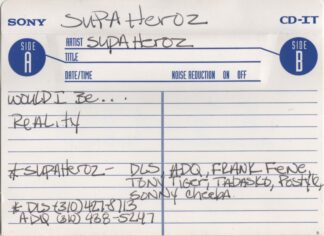 SONY SUPAHEROZ CD-IT
SIDE A
ARTIST SUPAHEROZ
TITLE
DATE/TIME NOISE REDUCTION ON OFF
SIDE B
WOULD I BE...
REALITY
*SUPAHEROZ- DLS, ADQ, FRANK FENE,
TONY TIGER, TADASKO, POSTYLE,
SONNY CHEEBA.
* DLS (310) 427-8713
ADQ (310) 438-5247